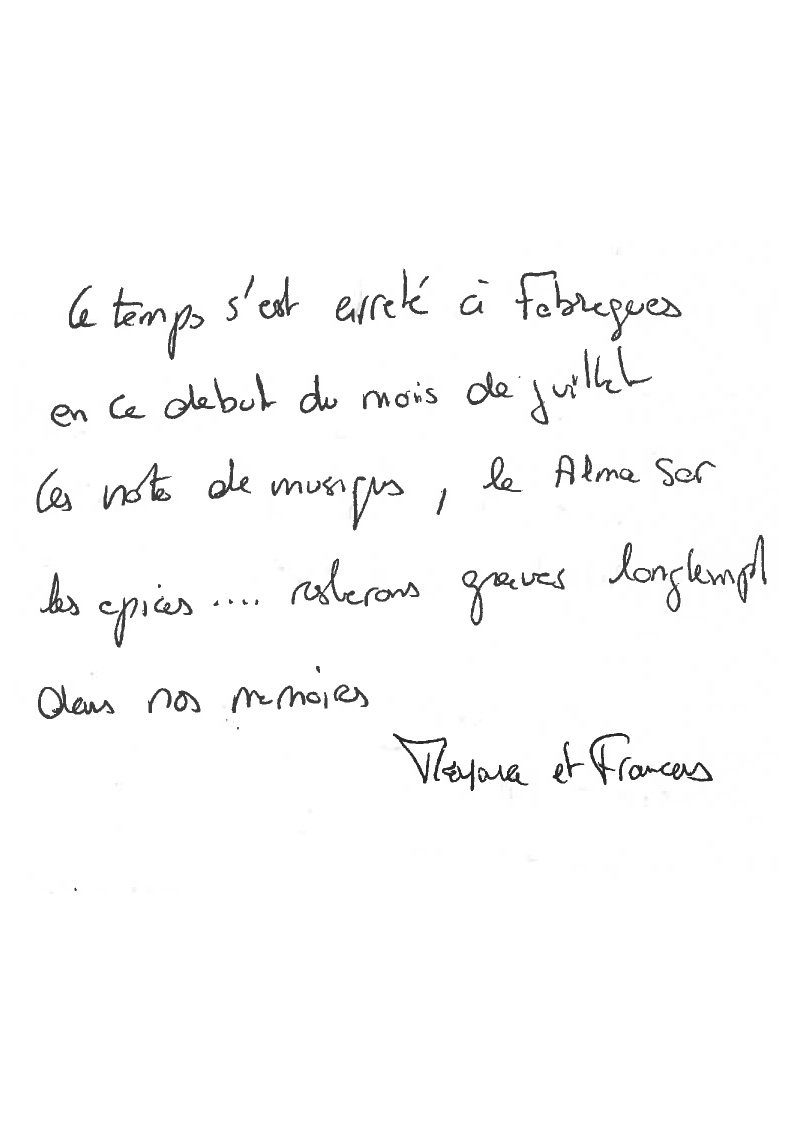 Le temps s'est arreté à Fabregues
en ce debut du mois de juillet
Les notes de musiques, le Alma Ser
les epices .... resterons graves longtempt
dans nos memoires
et Francers